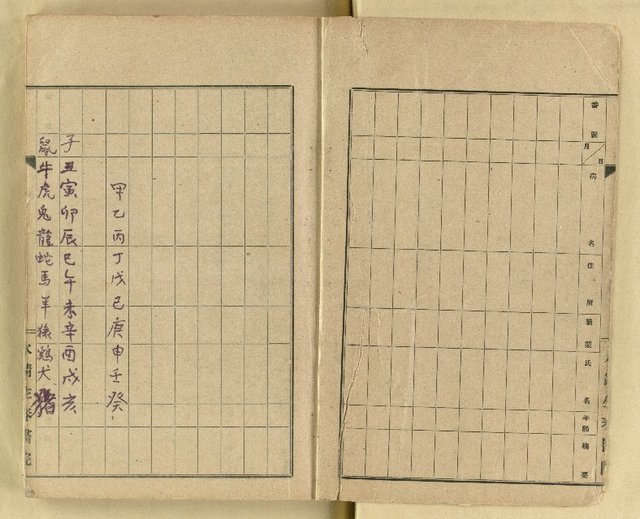 番號
月日
病名
住所
職業
氏名
年齡
摘要
甲乙丙丁戊己庚申壬癸
子丑寅卯辰巳午未辛酉戌亥
鼠牛虎兔龍蛇馬羊猿鶏犬猪